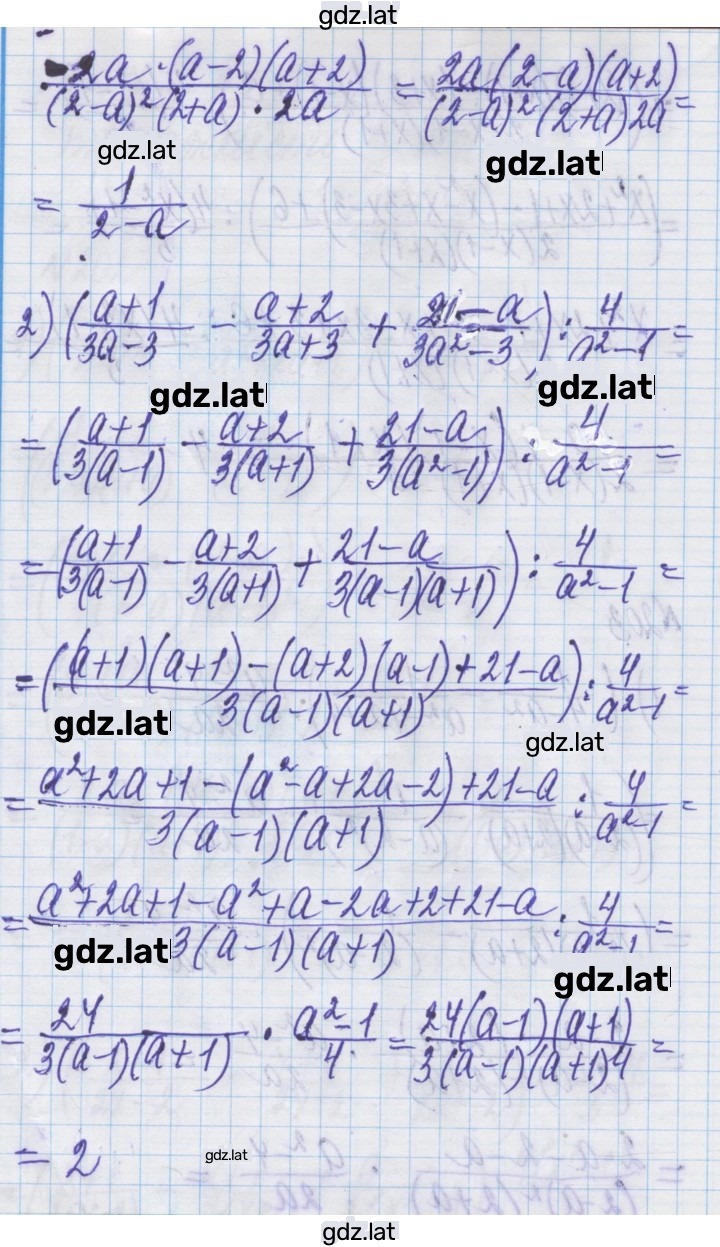 gdz.lat
-2a·(a-2)(a+2)/(2-a)²(2+a)·2a = 2a(2-a)(a+2)/(2-a)²(2+a)2a =
gdz.lat gdz.lat
= 1/2-a
2) (a+1/3a-3 - a+2/3a+3 + 21-a/3a²-3) : 4/a²-1 =
gdz.lat gdz.lat
= (a+1/3(a-1) - a+2/3(a+1) + 21-a/3(a²-1)) : 4/a²-1 =
= (a+1/3(a-1) - a+2/3(a+1) + 21-a/3(a-1)(a+1)) : 4/a²-1 =
= ((a+1)(a+1)-(a+2)(a-1)+21-a/3(a-1)(a+1)) : 4/a²-1 =
gdz.lat gdz.lat
= a²+2a+1-(a²-a+2a-2)+21-a/3(a-1)(a+1) : 4/a²-1 =
= a²+2a+1-a²+a-2a+2+21-a/3(a-1)(a+1) : 4/a²-1 =
gdz.lat gdz.lat
= 24/3(a-1)(a+1) · a²-1/4 = 24(a-1)(a+1)/3(a-1)(a+1)4 =
= 2
gdz.lat
gdz.lat